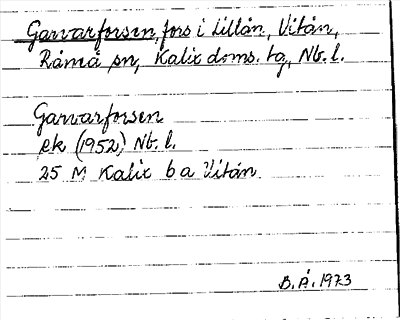 Garvarforsen, fors i Lillån, Vitån,
Råneå sn, Kalix doms. tg, Nb. l.
Garvarforsen
ek (1952) Nb. l.
25 M Kalix 6 a Vitån.
B. Å. 1973